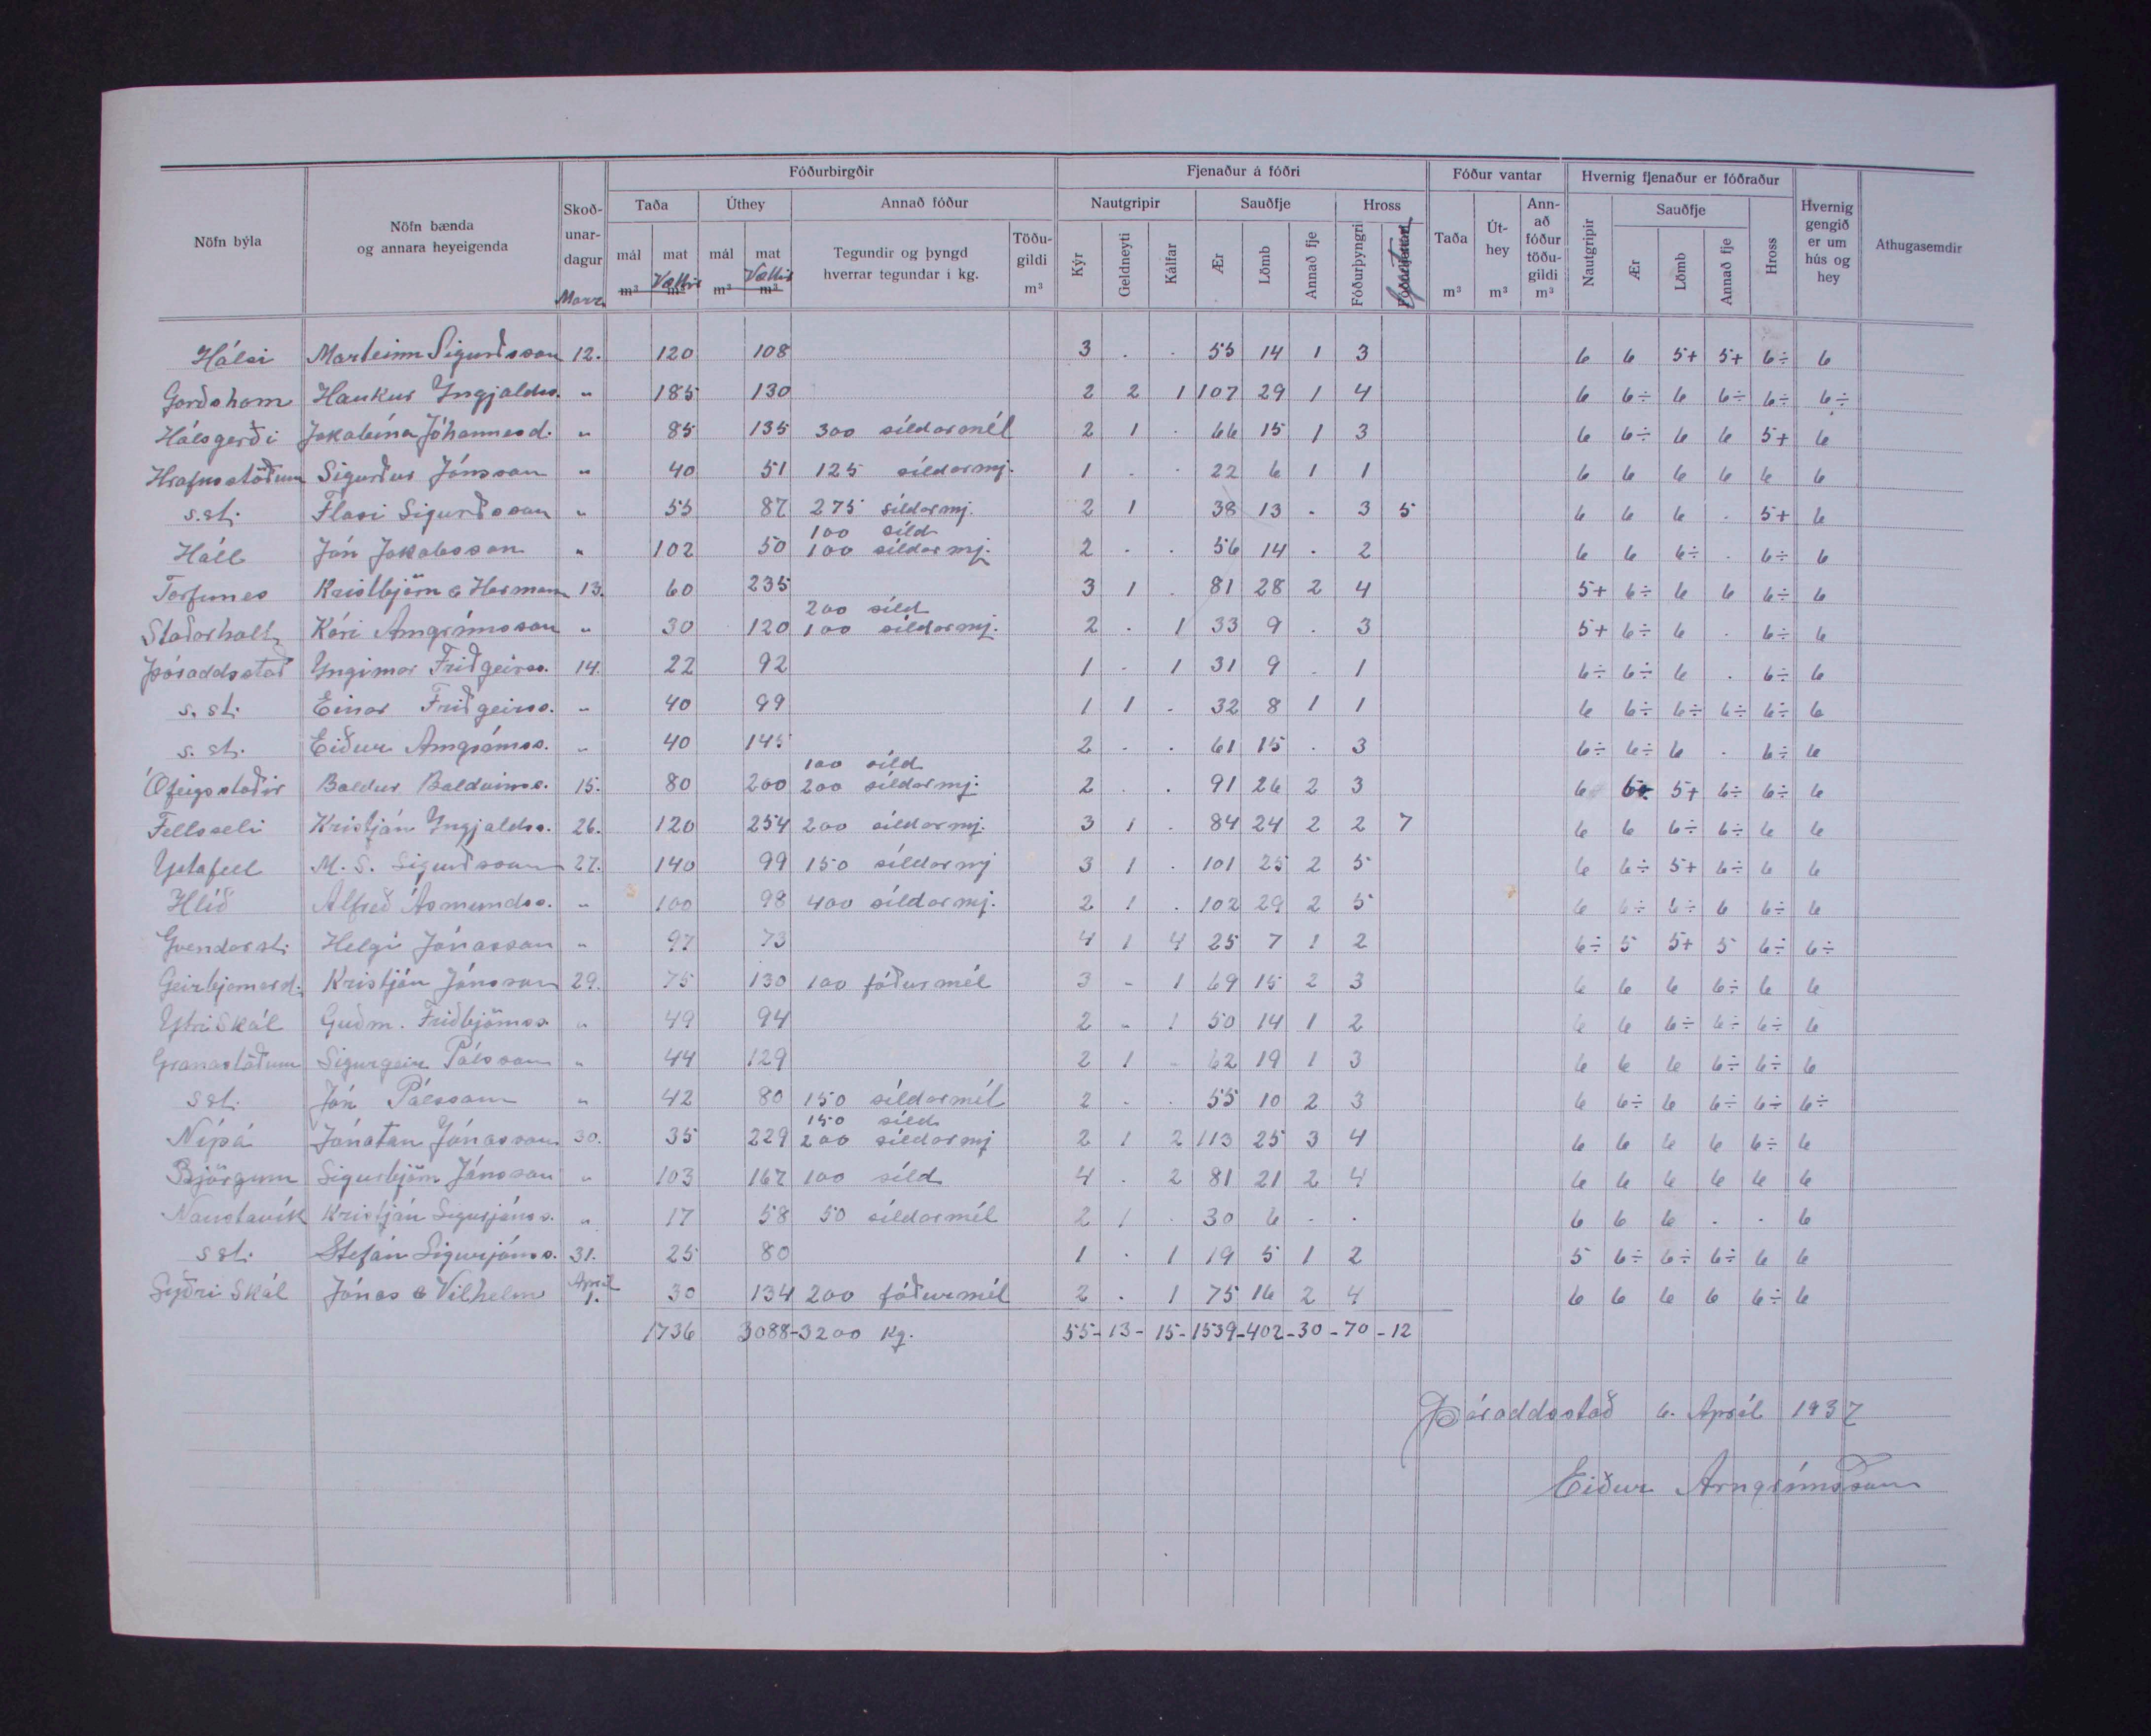 Nöfn býla | Nöfn bænda og annara heyeigenda | Skoð-unar-dagur | Fóðurbirgðir | Fjenaður á fóðri | Fóður vantar | Hvernig fjenaður er fóðraður | Hvernig gengið er um hús og hey | Athugasemdir
Taða | Úthey | Annað fóður | Nautgripir | Sauðfje | Hross | Taða m³ | Út-hey m³ | Ann-að fóður töðu-gildi m³ | Nautgripir | Sauðfje | Hross
mál m³ | mat m³ | mál m³ | mat m³ | Tegundir og þyngd hverrar tegundar í kg. | Töðu-gildi m³ | Kýr | Geldneyti | Kálfar | Ær | Lömb | Annað fje | Fóðurþyngri | Ær | Lömb | Annað fje
Marz. Vættir Vættir
Hálsi Marteinn Sigurðsson 12. 120 108 3 . . 55 14 1 3 6 6 5+ 5+ 6÷ 6
Garðshorn Haukur Yngjaldss. " 185 130 2 2 1 107 29 1 4 6 6÷ 6 6÷ 6÷ 6÷
Hálsgerði Jakobína Jóhannesd. " 85 135 300 síldarmél 2 1 . 66 15 1 3 6 6÷ 6 6 5+ 6
Hrafnsstöðum Sigurður Jónsson " 40 51 125 síldarmj. 1 . . 22 6 1 1 6 6 6 6 6 6
s.st. Flosi Sigurðsson " 55 87 275 síldarmj. 2 1 38 13 . 3 5 6 6 6 . 5+ 6
100 síld
Háll Jón Jakobsson " 102 50 100 síldarmj. 2 . . 56 14 . 2 6 6 6÷ . 6÷ 6
Torfunes Kristbjörn & Hermann 13. 60 235 3 1 . 81 28 2 4 5+ 6÷ 6 6 6÷ 6
200 síld
Staðarholt Kári Arngrímsson " 30 120 100 síldarmj. 2 . 1 33 9 . 3 5+ 6÷ 6 . 6÷ 6
Þóroddsstað Yngimar Friðgeirss. 14. 22 92 1 - 1 31 9 . 1 6÷ 6÷ 6 . 6÷ 6
s. st. Einar Friðgeirss. " 40 99 1 1 - 32 8 1 1 6 6÷ 6÷ 6÷ 6÷ 6
s. st. Eiður Arngrímss. " 40 145 2 . . 61 15 . 3 6÷ 6÷ 6 . 6÷ 6
100 síld
Ófeigsstaðir Baldur Baldvinss. 15. 80 200 200 síldarmj. 2 . . 91 26 2 3 6 5+ 6÷ 6÷ 6
Fellsseli Kristján Yngjaldss. 26. 120 254 200 síldarmj. 3 1 . 84 24 2 2 7 6 6 6÷ 6÷ 6 6
Ystafell M. S. Sigurðsson 27. 140 99 150 síldarmj 3 1 . 101 25 2 5 6 6÷ 5+ 6÷ 6 6
Hlíð Alfreð Ásmundss. " 100 98 400 síldarmj. 2 1 . 102 29 2 5 6 6÷ 6÷ 6 6÷ 6
Gvendarst. Helgi Jónasson " 97 73 4 1 4 25 7 1 2 6÷ 5 5+ 5 6÷ 6÷
Geirbjarnarst. Kristján Jónsson 29. 75 130 100 fóðurmél 3 - 1 69 15 2 3 6 6 6 6÷ 6 6
Ytri Skál Guðm. Friðbjörnss. " 49 94 2 - 1 50 14 1 2 6 6 6÷ 6÷ 6÷ 6
Granastöðum Sigurgeir Pálsson " 44 129 2 1 - 62 19 1 3 6 6 6 6÷ 6÷ 6
s st. Jón Pálsson " 42 80 150 síldarmél 2 - . 55 10 2 3 6 6÷ 6 6÷ 6÷ 6÷
150 síld
Nípá Jónatan Jónasson 30. 35 229 200 síldarmj 2 1 2 113 25 3 4 6 6 6 6 6÷ 6
Björgum Sigurbjörn Jónsson " 103 167 100 síld 4 . 2 81 21 2 4 6 6 6 6 6 6
Naustavík Kristján Sigurjónss. " 17 58 50 síldarmél 2 1 . 30 6 . . 6 6 6 . . 6
s st. Stefán Sigurjónss. 31. 25 80 1 . 1 19 5 1 2 5 6÷ 6÷ 6÷ 6 6
Syðri Skál Jónas & Vilhelm Apríl 1. 30 134 200 fóðurmél 2 . 1 75 16 2 4 6 6 6 6 6÷ 6
1736 3088-3200 Kg. 55-13-15-1539-402-30-70-12
Þóroddsstað 6. Apríl 1937
Eiður Arngrímsson